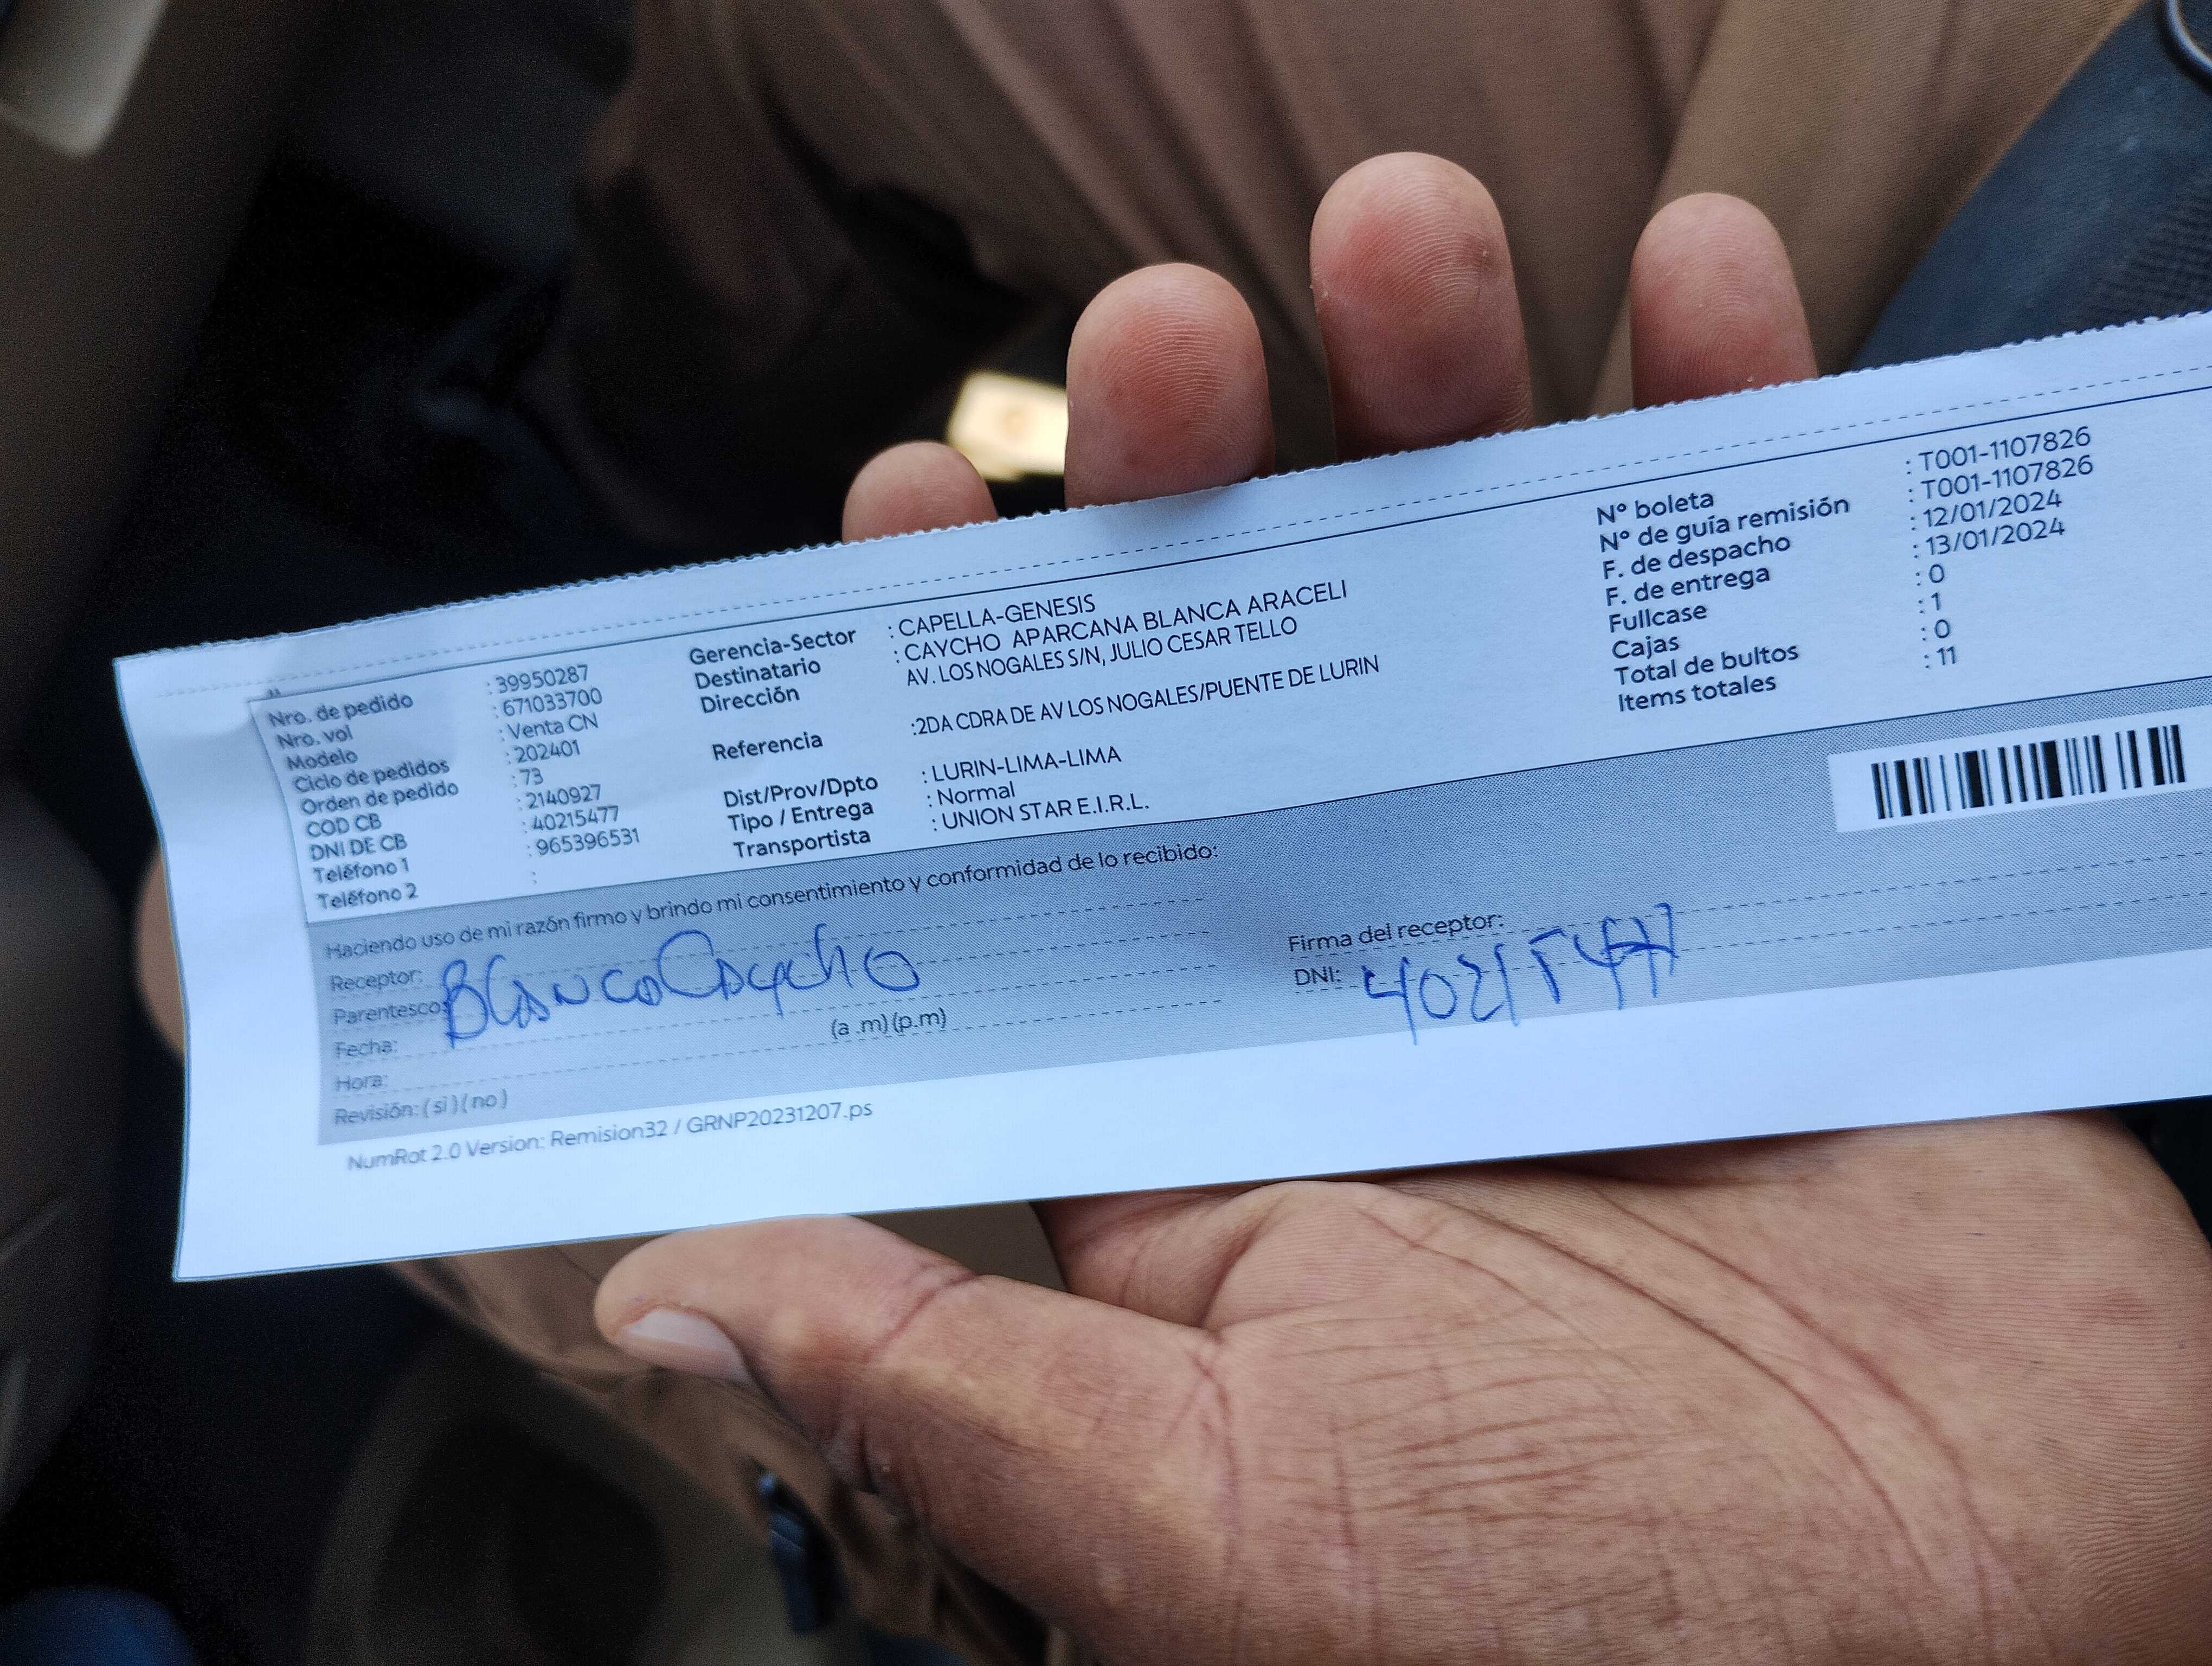 Nro. de pedido : 39950287
Nro. vol : 671033700
Modelo : Venta CN
Ciclo de pedidos : 202401
Orden de pedido : 73
COD CB : 2140927
DNI DE CB : 40215477
Teléfono 1 : 965396531
Teléfono 2 :
Gerencia-Sector : CAPELLA-GENESIS
Destinatario : CAYCHO APARCANA BLANCA ARACELI
Dirección AV. LOS NOGALES S/N, JULIO CESAR TELLO
Referencia :2DA CDRA DE AV LOS NOGALES/PUENTE DE LURIN
Dist/Prov/Dpto : LURIN-LIMA-LIMA
Tipo / Entrega : Normal
Transportista : UNION STAR E.I.R.L.
Nº boleta : T001-1107826
Nº de guía remisión : T001-1107826
F. de despacho : 12/01/2024
F. de entrega : 13/01/2024
Fullcase : 0
Cajas : 1
Total de bultos : 0
Items totales : 11
Haciendo uso de mi razón firmo y brindo mi consentimiento y conformidad de lo recibido:
Receptor:
Parentesco: Blanca Caycho
Fecha:
Hora: (a .m) (p.m)
Revisión: ( si ) ( no )
Firma del receptor:
DNI: 40215477
NumRot 2.0 Version: Remision32 / GRNP20231207.ps